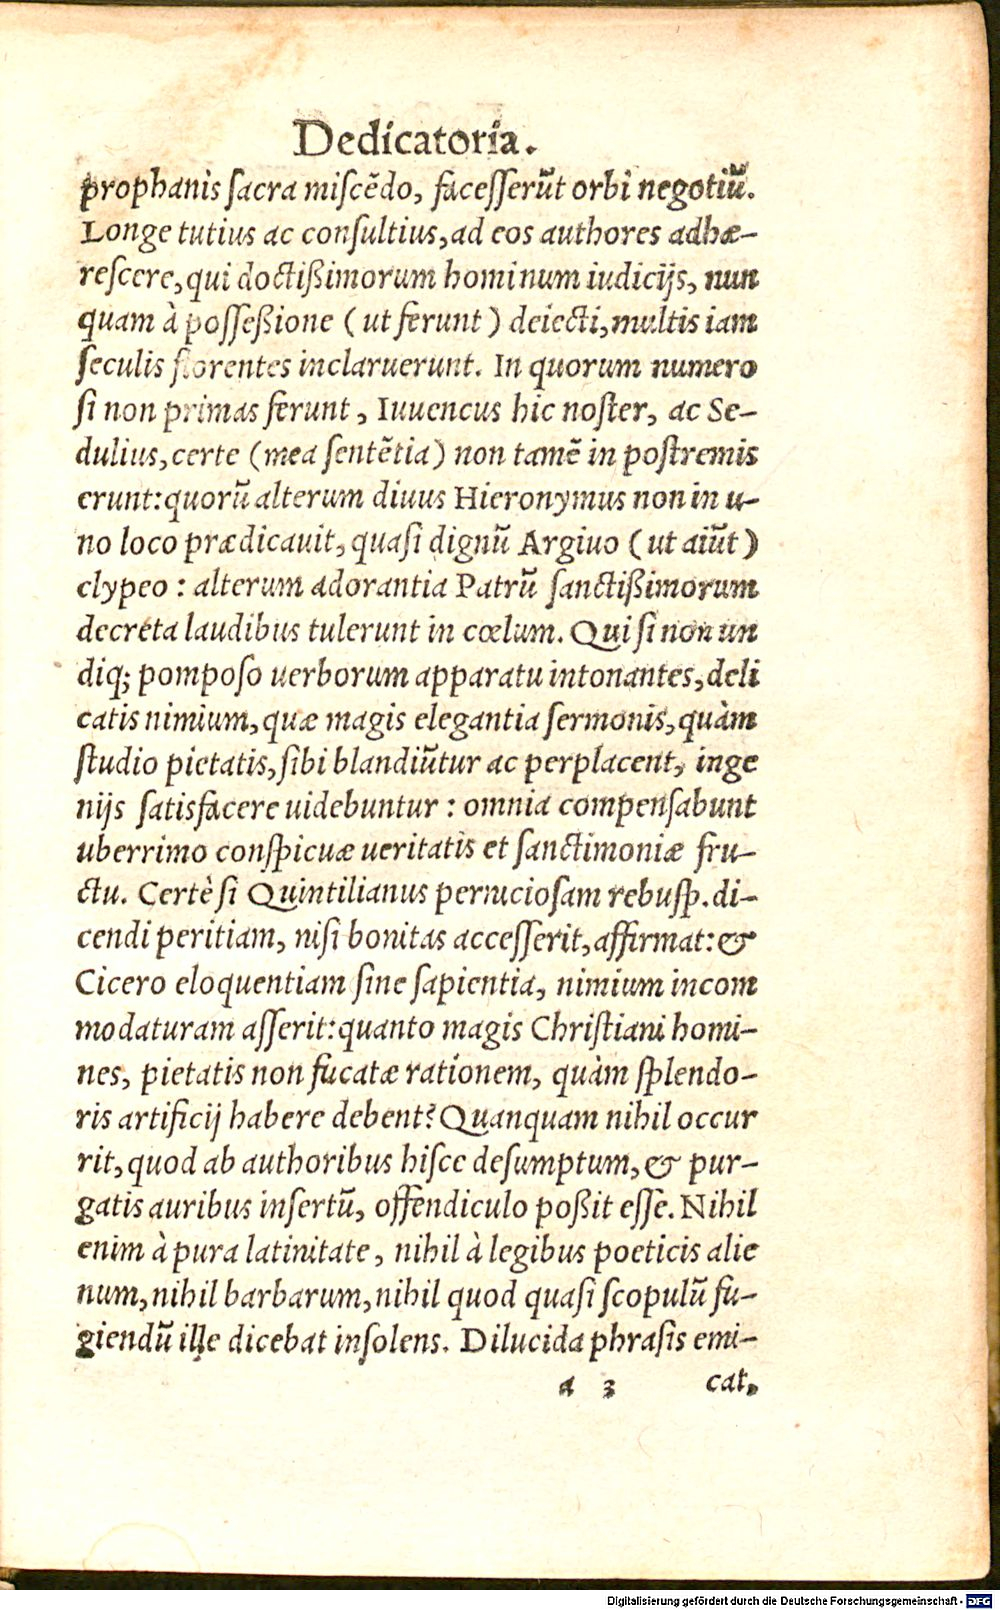 Dedicatoria.
prophanis ſacra miſcẽdo, faceſſerũt orbi negotiũ.
Longe tutius ac conſultius, ad eos authores adhæ-
reſcere, qui doctißimorum hominum iudicijs, nun
quam à poſſeßione (ut ferunt) deiecti, multis iam
ſeculis florentes inclaruerunt. In quorum numero
ſi non primas ferunt, Iuuencus hic noſter, ac Se-
dulius, certe (mea ſentẽtia) non tamẽ in poſtremis
erunt: quorũ alterum diuus Hieronymus non in u-
no loco prædicauit, quaſi dignũ Argiuo (ut aiũt)
clypeo: alterum adorantia Patrũ ſanctißimorum
decreta laudibus tulerunt in cœlum. Qui ſi non un
diq; pompoſo uerborum apparatu intonantes, deli
catis nimium, quæ magis elegantia ſermonis, quàm
ſtudio pietatis, ſibi blandiũtur ac perplacent, inge
nijs ſatisfacere uidebuntur: omnia compenſabunt
uberrimo conſpicuæ ueritatis et ſanctimoniæ fru-
ctu. Certè ſi Quintilianus pernicioſam rebuſp. di-
cendi peritiam, niſi bonitas acceſſerit, affirmat: &
Cicero eloquentiam ſine ſapientia, nimium incom
modaturam aſſerit: quanto magis Chriſtiani homi-
nes, pietatis non fucatæ rationem, quàm ſplendo-
ris artificij habere debent? Quanquam nihil occur
rit, quod ab authoribus hiſce deſumptum, & pur-
gatis auribus inſertũ, offendiculo poßit eſſe. Nihil
enim à pura latinitate, nihil à legibus poeticis alie
num, nihil barbarum, nihil quod quaſi ſcopulũ fu-
giendũ ille dicebat inſolens. Dilucida phraſis emi-
a 3 cat,
Digitalisierung gefördert durch die Deutsche Forschungsgemeinschaft - DFG